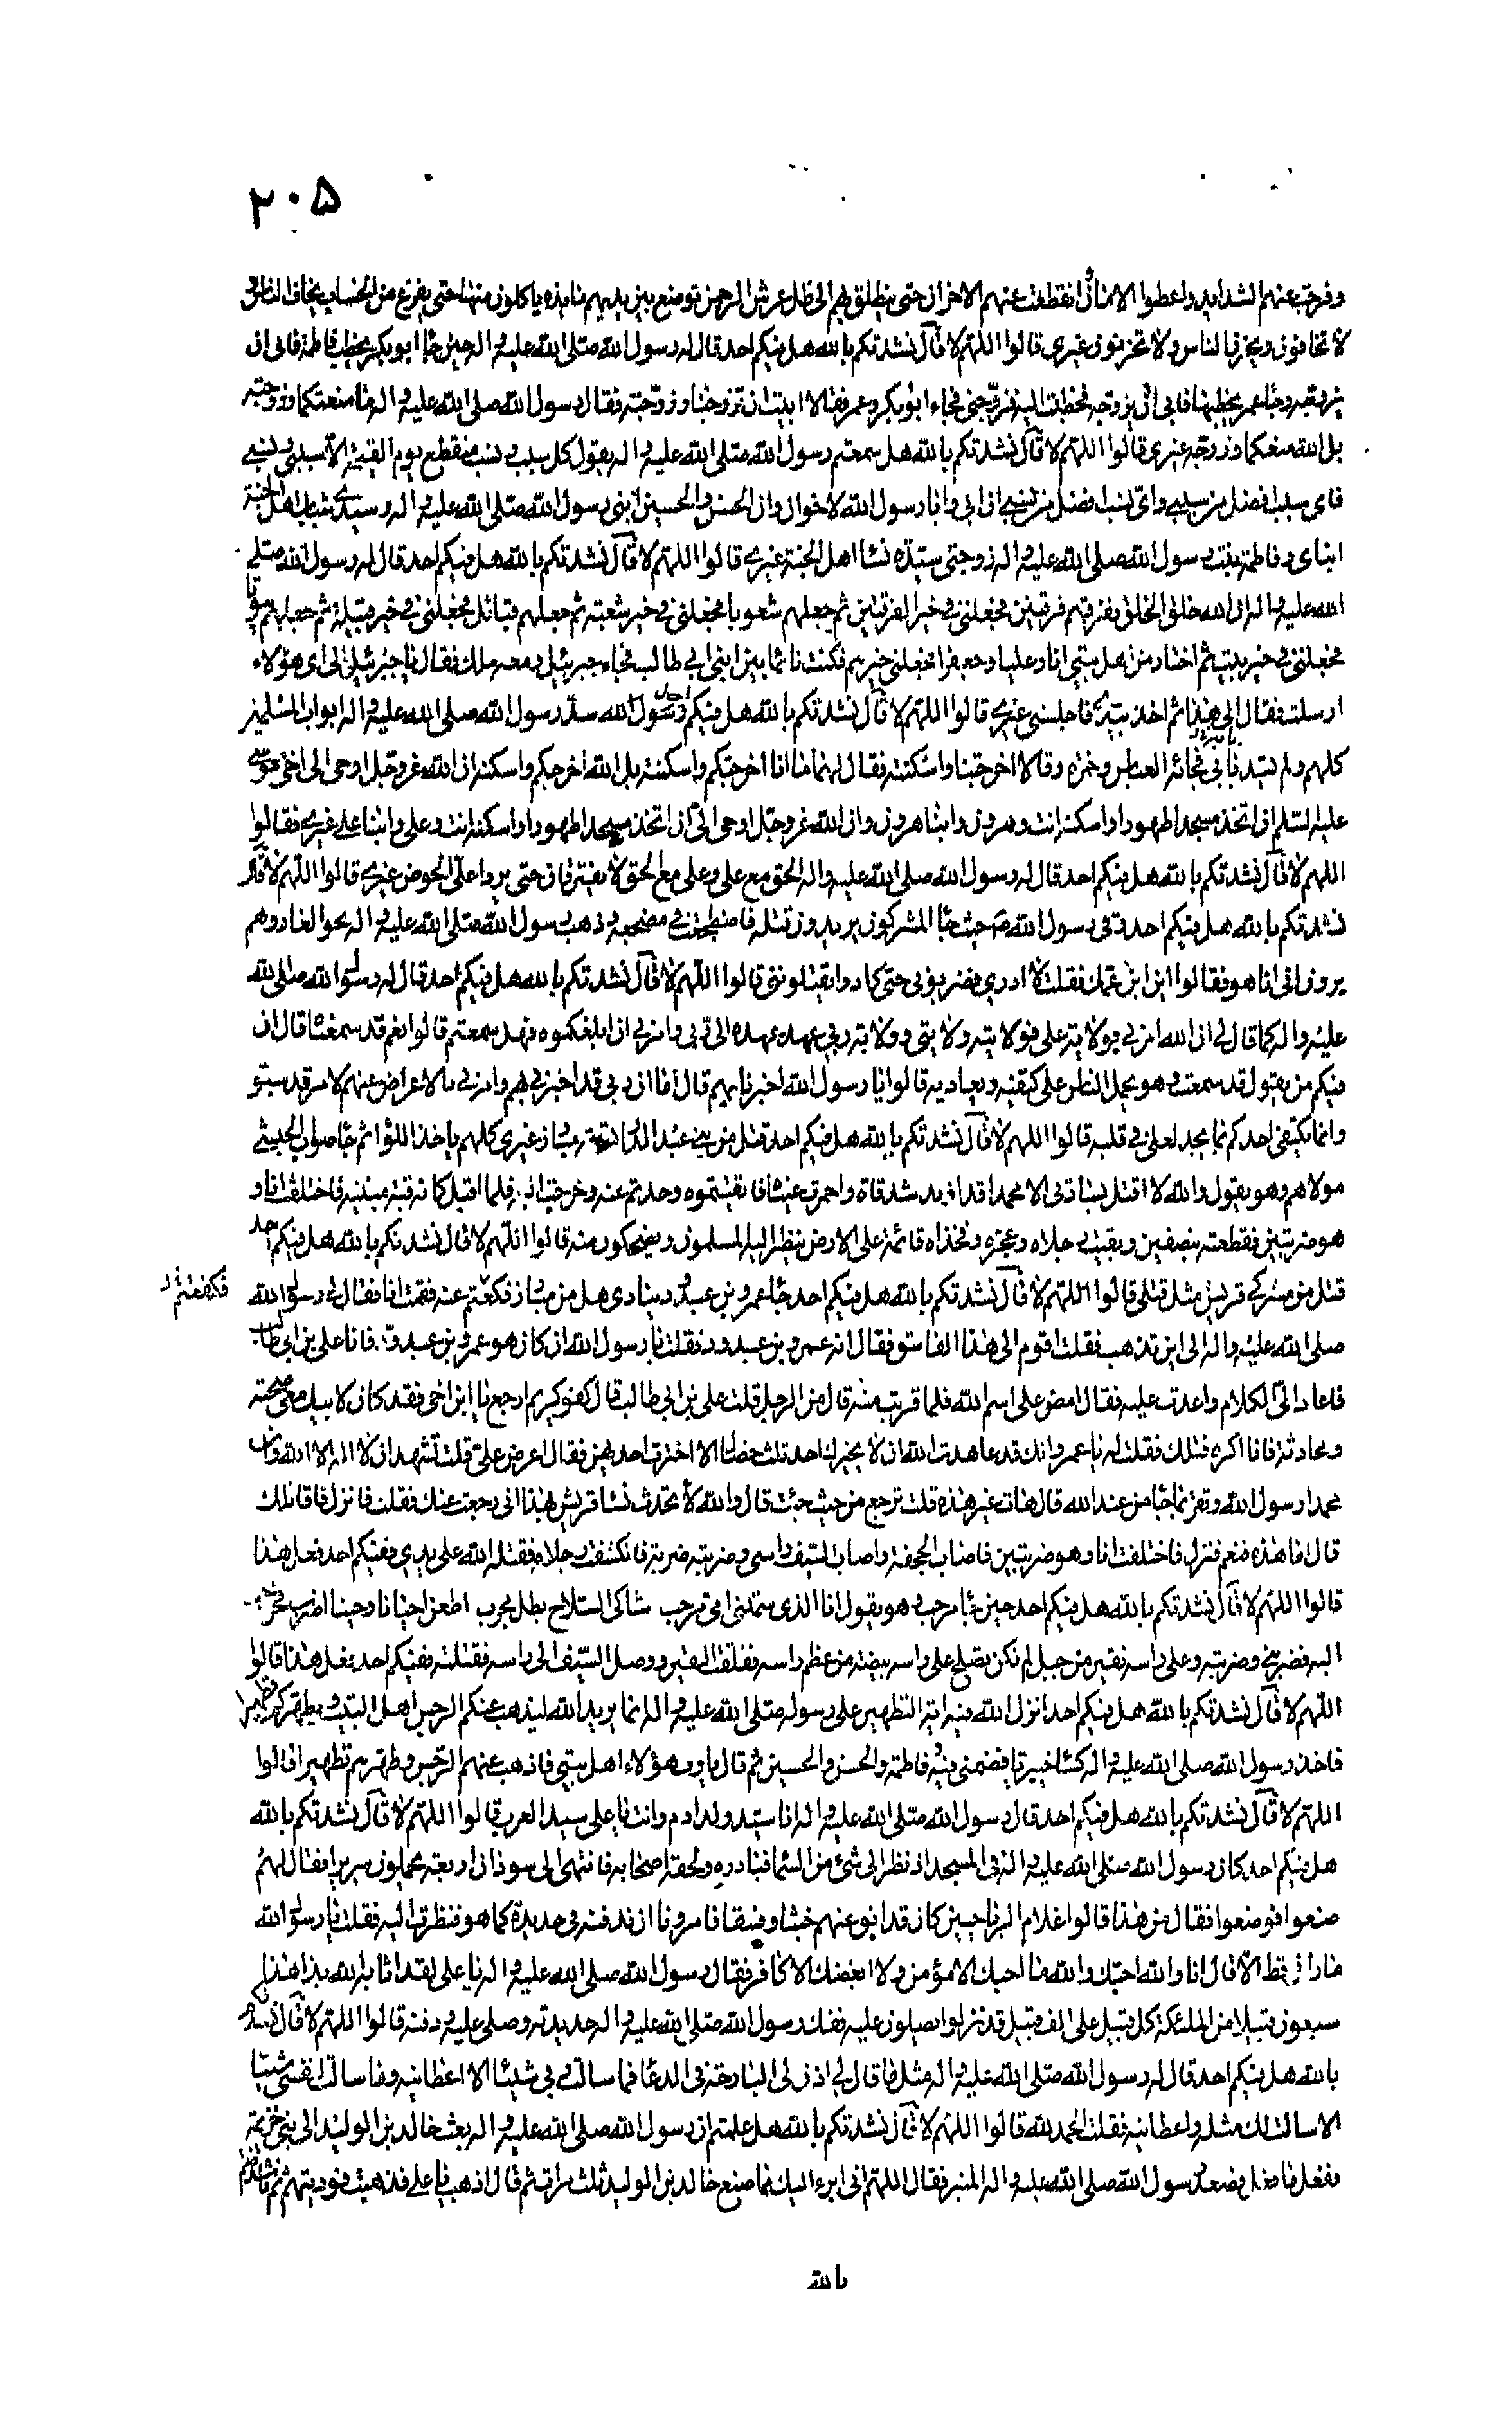 ٢٠۵
وفرجت عنهم الشدايد واعطوا الامان وانقطعت عنهم الاحزان حتى ينطلق بهم الى ظل عرش الرحمن توضع بين يديهم مايدة ياكلون منها حتى يفرغ من الحساب يخاف الناس و
لا تخافون ويحزن الناس ولا تحزنون غيرى قالوا اللهم لا قال نشدتكم بالله هل فيكم احد قال له رسول الله صلى الله عليه واله حين جاء ابو بكر يخطب فاطمة فابى ان
يزوجه وجاء عمر يخطبها فابى ان يزوجه فخطبت اليه فزوجنى فجاء ابو بكر وعمر فقالا ابيت ان تزوجنا وزوجته فقال رسول الله صلى الله عليه واله ما منعتكما وزوجته
بل الله منعكما وزوجه غيرى قالوا اللهم لا قال نشدتكم بالله هل سمعتم رسول الله صلى الله عليه واله يقول كل سبب ونسب منقطع يوم القيمة الا سببى ونسبى
فاى سبب افضل من سببى واى نسب افضل من نسبى ان ابى وابا رسول الله لاخوان وان الحسن والحسين ابنى رسول الله صلى الله عليه واله وسيدى شباب اهل الجنة
ابناى وفاطمة بنت رسول الله صلى الله عليه واله زوجتى سيدة نساء اهل الجنة غيرى قالوا اللهم لا قال نشدتكم بالله هل فيكم احد قال له رسول الله صلى
الله عليه واله ان الله خلق الخلق ففرقهم فرقتين فجعلنى فى خير الفرقتين ثم جعلهم شعوبا فجعلنى فى خير شعبة ثم جعلهم قبائل فجعلنى فى خير قبيلة ثم جعلهم بيوتا
فجعلنى فى خير بيت ثم اختار من اهل بيتى انا وعليا وجعفرا فجعلنى خيرهم فكنت نائما بين ابنى ابى طالب فجاء جبرئيل ومعه ملك فقال يا جبرئيل الى اى هؤلاء
ارسلت فقال الى هذا ثم اخذ بيدى فاجلسنى غيرى قالوا اللهم لا قال نشدتكم بالله هل فيكم احد سد رسول الله صلى الله عليه واله ابواب المسلمين
كلهم ولم يسد بابى فجاءه العباس وحمزة وقالا اخرجتنا واسكنته فقال لهما ما انا اخرجتكم واسكنته بل الله اخرجكم واسكنه ان الله عز وجل اوحى الى اخى موسى
عليه السلم ان اتخذ مسجدا طهورا واسكنه انت وهرون وابنا هرون وان الله عز وجل اوحى الى ان اتخذ مسجدا طهورا واسكنه انت وعلى وابنا على غيرى فقالوا
اللهم لا قال نشدتكم بالله هل فيكم احد قال له رسول الله صلى الله عليه واله الحق مع على وعلى مع الحق لا يفترقان حتى يردا على الحوض غيرى قالوا اللهم لا قال
نشدتكم بالله هل فيكم احد وقى رسول الله ص حيث جاء المشركون يريدون قتله فاضطجعت فى مضجعه وذهب رسول الله صلى الله عليه واله نحو الغار وهم
يرون انى انا هو فقالوا اين ابن عمك فقلت لا ادرى فضربونى حتى كادوا يقتلوننى قالوا اللهم لا قال نشدتكم بالله هل فيكم احد قال له رسول الله صلى الله
عليه واله كما قال لى ان الله امرنى بولاية على فولايته ولايتى وولايتى ولاية ربى عهد عهده الى ربى وامرنى ان ابلغكموه فهل سمعتم قالوا نعم قد سمعناه قال ان
فيكم من يقول قد سمعت وهو يحمل الناس على كتفيه ويعاديه قالوا يا رسول الله اخبرنا بهم قال اما ان ربى قد اخبرنى بهم وامرنى بالاعراض عنهم لامر قد سبق
وانما يكتفى احدكم بما يجد لعلى فى قلبه قالوا اللهم لا قال نشدتكم بالله هل فيكم احد قتل من بنى عبد الدار تسعة مبارزة غيرى كلهم ياخذ اللواء ثم جاء صواب الحبشى
مولاهم وهو يقول والله لا اقتل بسادتى الا محمدا قد ازبد شدقاه واحمرت عيناه فاتقيتموه وحدتم عنه وخرجت اليه فلما اقبل كانه قبة مبنية فاختلفت انا و
هو ضربتين فقطعته بنصفين وبقيت رجلاه وعجزه وفخذاه قائمة على الارض ينظر اليه المسلمون ويضحكون منه قالوا اللهم لا قال نشدتكم بالله هل فيكم احد
قتل من مشركى قريش مثل قتلى قالوا اللهم لا قال نشدتكم بالله هل فيكم احد جاء عمرو بن عبد ود ينادى هل من مبارز فكعتم عنه فقمت انا فقال لى رسول الله
صلى الله عليه واله الى اين تذهب فقلت اقوم الى هذا الفاسق فقال انه عمرو بن عبد ود فقلت يا رسول الله ان كان هو عمرو بن عبد ود فانا على بن ابى طالب
فاعاد الى الكلام واعدت عليه فقال امض على اسم الله فلما قربت منه قال من الرجل قلت على بن ابى طالب قال كفو كريم ارجع يا ابن اخى فقد كان لابيك معى صحبة
ومحادثة فانا اكره قتلك فقلت له يا عمرو انك قد عاهدت الله ان لا يخيرك احد ثلث خصال الا اخترت احديهن فقال اعرض على قلت تشهد ان لا اله الا الله وان
محمدا رسول الله وتقر بما جاء من عند الله قال هات غير هذه قلت ترجع من حيث جئت قال والله لا تحدث نساء قريش بهذا انى رجعت عنك فقلت فانزل فاقاتلك
قال اما هذه فنعم فنزل فاختلفت انا وهو ضربتين فاصاب الحجفة واصاب السيف راسى وضربته ضربة فانكشفت رجلاه فقتله الله على يدى ففيكم احد فعل هذا
قالوا اللهم لا قال نشدتكم بالله هل فيكم احد حين جاء مرحب وهو يقول انا الذى سمتنى امى مرحب شاكى السلاح بطل مجرب اطعن احيانا وحينا اضرب فخرجت
اليه فضربنى وضربته وعلى راسه نقير من جبل لم تكن تصلح على راسه بيضة من عظم راسه ففلقت النقير ووصل السيف الى راسه فقتلته ففيكم احد فعل هذا قالوا
اللهم لا قال نشدتكم بالله هل فيكم احد انزل الله فيه اية التطهير على رسوله صلى الله عليه واله انما يريد الله ليذهب عنكم الرجس اهل البيت ويطهركم تطهيرا
فاخذ رسول الله صلى الله عليه واله كساء خيبريا فضمنى فيه وفاطمة والحسن والحسين ثم قال يا رب هؤلاء اهل بيتى فاذهب عنهم الرجس وطهرهم تطهيرا قالوا
اللهم لا قال نشدتكم بالله هل فيكم احد قال رسول الله صلى الله عليه واله انا سيد ولد ادم وانت يا على سيد العرب قالوا اللهم لا قال نشدتكم بالله
هل فيكم احد كان رسول الله صلى الله عليه واله فى المسجد اذ نظر الى شئ من السماء فبادره ولحقه اصحابه فانتهى الى سودان اربعة يحملون سريرا فقال لهم
ضعوا فوضعوا فقال من هذا قالوا غلام الرياحيين كان قد ابق عنهم خبثا وفسقا فامرونا ان ندفنه فى حديدة كما هو فنظرت اليه فقلت يا رسول الله
ما رانى قط الا قال انا والله احبك والله ما احبك الا مؤمن ولا ابغضك الا كافر فقال رسول الله صلى الله عليه واله يا على لقد اثابه الله بذا هذا
سبعون قبيلا من الملئكة كل قبيل على الف قبيل قد نزلوا يصلون عليه ففك رسول الله صلى الله عليه واله حديدته وصلى عليه ودفنه قالوا اللهم لا قال نشدتكم
بالله هل فيكم احد قال له رسول الله صلى الله عليه واله مثل ما قال لى اذن لى البارحة فى الدعاء فما سالت ربى شيئا الا اعطانيه وما سالت لنفسى شيئا
الا سالت لك مثله واعطانيه فقلت الحمد لله قالوا اللهم لا قال نشدتكم بالله هل علمتم ان رسول الله صلى الله عليه واله بعث خالد بن الوليد الى بنى خزيمة
ففعل ما فعل فصعد رسول الله صلى الله عليه واله المنبر فقال اللهم انى ابرء اليك مما صنع خالد بن الوليد ثلث مرات ثم قال اذهب يا على فذهبت فوديتهم ثم ناشدتهم
بالله